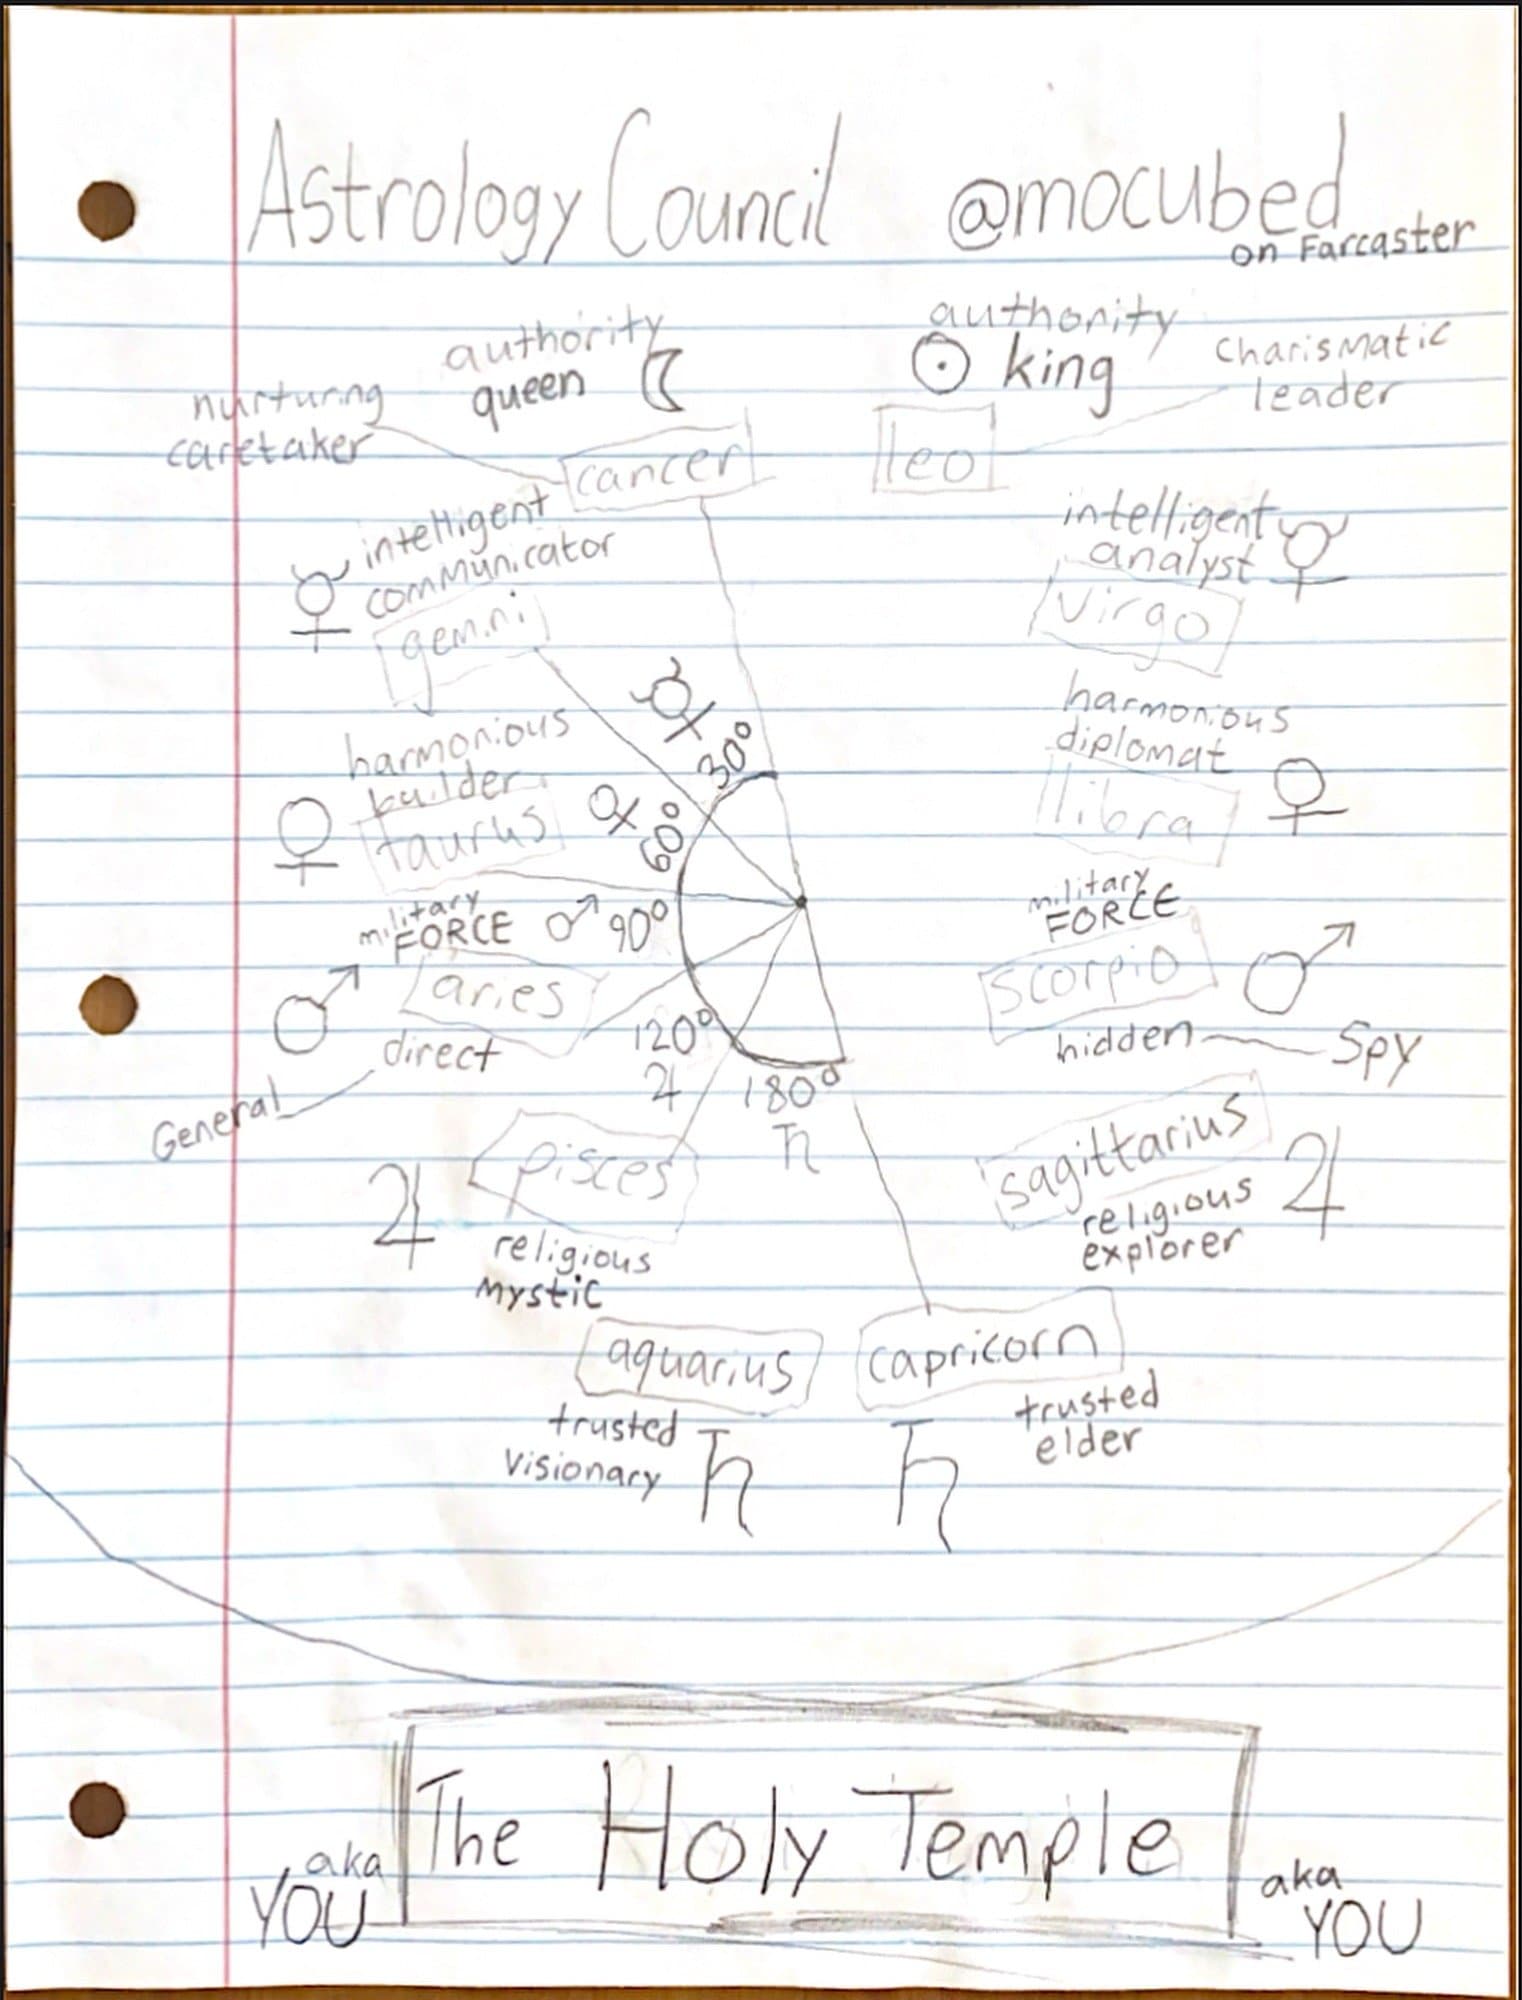 Astrology Council @mocubed
on Farcaster
authority
queen ☾
nurturing
caretaker
cancer
authority
☉ king
charismatic
leader
leo
intelligent
communicator
☿
gemini
intelligent
analyst
☿
virgo
harmonious
builder
♀
taurus
harmonious
diplomat
libra ♀
☿
30°
♀
60°
♂ 90°
120°
♃
180°
♄
military
FORCE
♂
aries
direct
General
military
FORCE
scorpio ♂
hidden
Spy
pisces
♃
religious
mystic
sagittarius ♃
religious
explorer
aquarius
trusted
visionary ♄
capricorn
♄
trusted
elder
The Holy Temple
aka
YOU
aka
YOU